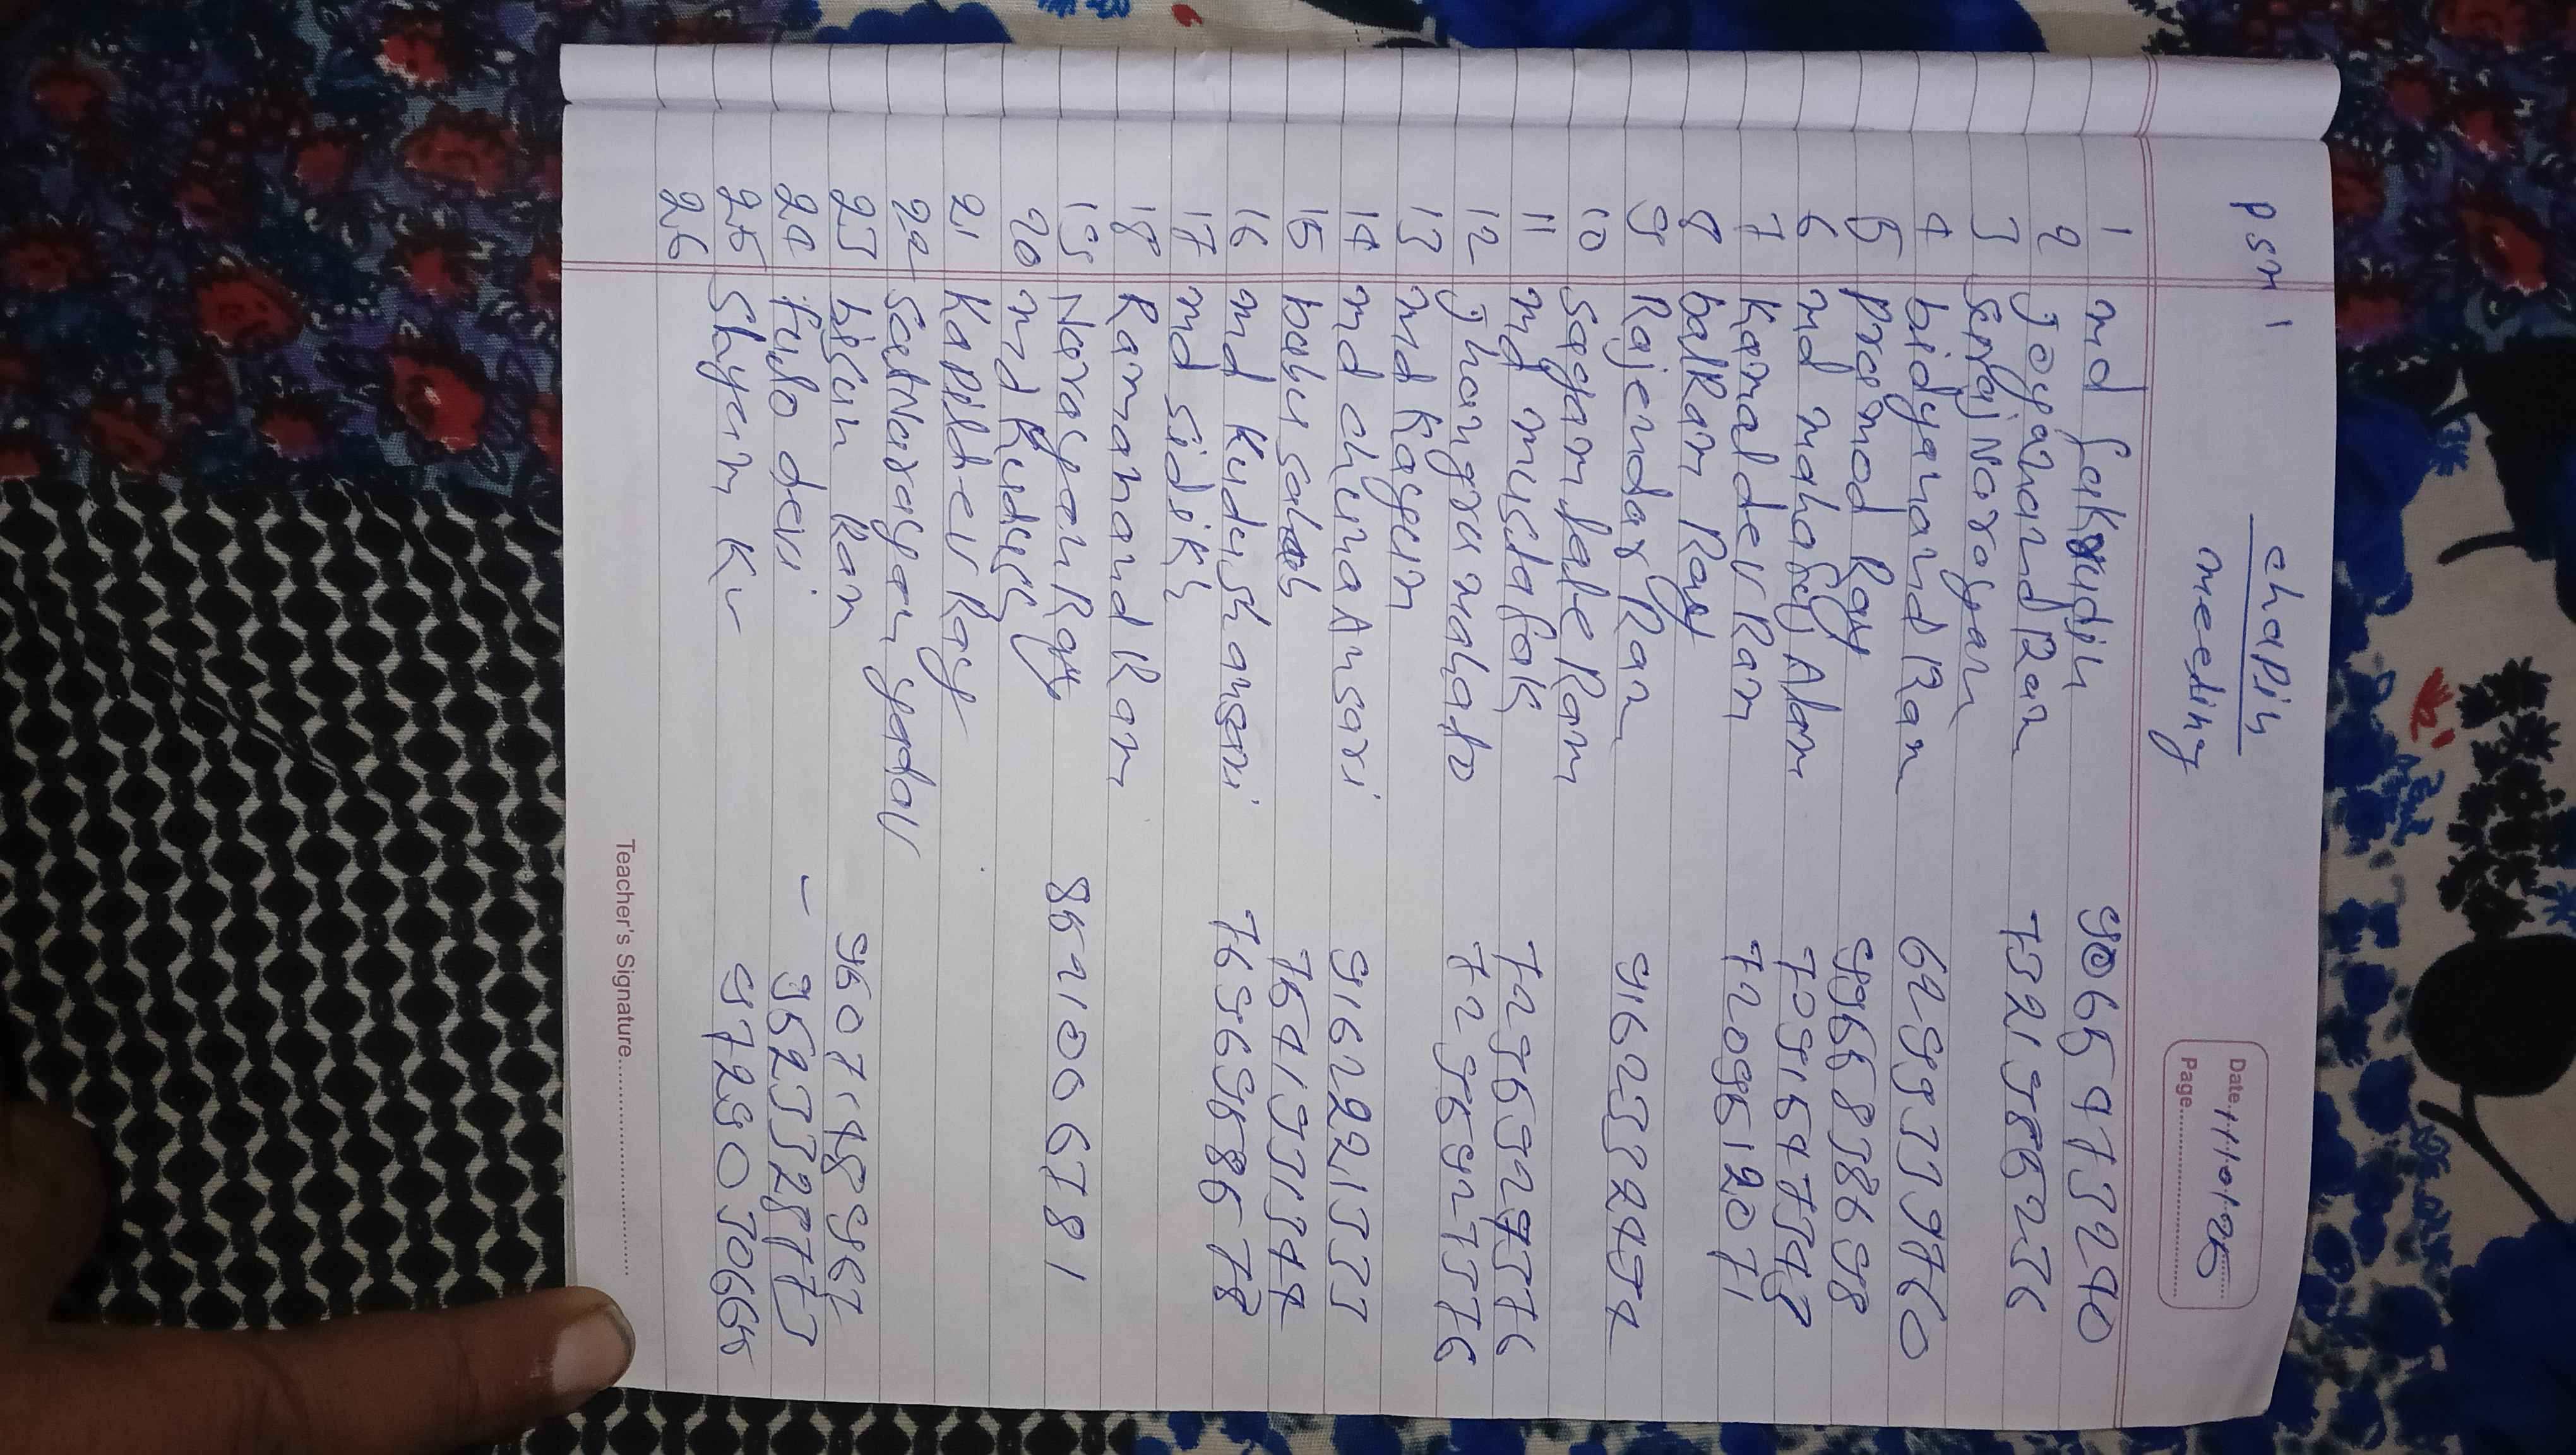 Date 11/10/25
Page
PSM 1
chapin
meeting
1 md fakrudin 9065973290
2 Joyanand Ram 7321358236
3 Siraj Narayan
4 bidyanand Ram 6299339760
5 Pramod Ray 9966838698
6 md mahafuj Alam 7091547348
7 Kamaldev Ram 7209612071
8 balRam Ray
9 Rajendar Ram 9162352494
10 Satyam babe Ram
11 md mustafak 7296927576
12 Jhangru mahato 7296927576
13 md Kayum
14 md china Ansari 9162221333
15 babu saheb 7641931544
16 md Kudush ansari 7696968678
17 md sidiki
18 Ramanand Ram
19 Narayan Ray 8521006781
20 md Kudush
21 Kapildev Ray
22 SatNarayan yadav
23 bisun Ram 9607148967
24 fulo devi - 9623328773
25 Shyam Ku 9725030665
26
Teacher's Signature